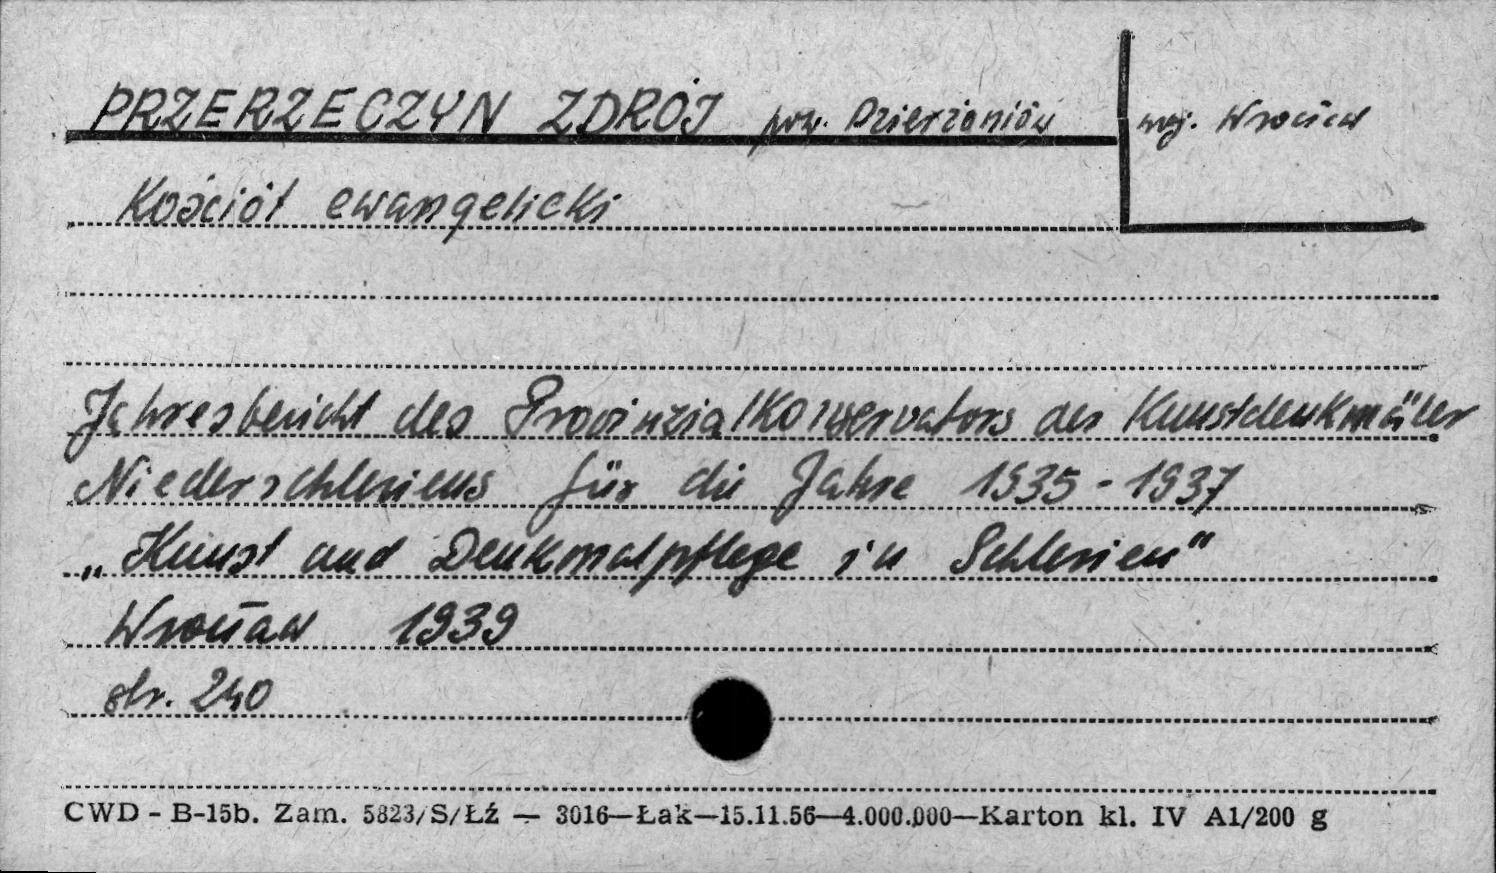 PRZERZECZYN ZDRÓJ pow. Dzierżoniów woj. Wrocław
Kościół ewangelicki
Jahresbericht des Provinzialkonservators der Kunstdenkmäler
Niederschlesiens für die Jahre 1935-1937
„Kunst und Denkmalpflege in Schlesien"
Wrocław 1939
str. 240
CWD - B-15b. Zam. 5823/S/Łź — 3016—Łak—15.11.56—4.000.000—Karton kl. IV A1/200 g